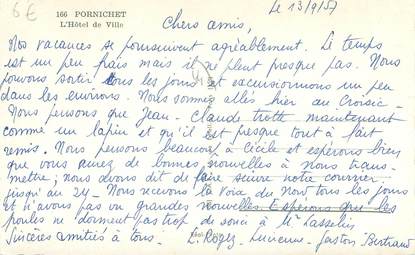 6€
166 PORNICHET
L'Hôtel de Ville
Le 13/9/57
Chers amis,
Nos vacances se poursuivent agréablement. Le temps
est un peu frais mais il ne pleut presque pas. Nous
pouvons sortir tous les jours et excursionnons un peu
dans les environs. Nous sommes allés hier au Croisic -
Nous pensons que Jean-Claude trotte maintenant
comme un lapin et qu'il est presque tout à fait
remis. Nous pensons beaucoup à Cécile et espérons bien
que vous aurez de bonnes nouvelles à nous trans-
mettre; nous avons dit de faire suivre notre courrier
jusqu'au 24 - Nous recevons la Voix du Nord tous les jours
et n'avons pas vu grandes nouvelles. Espérons que les
poules ne donnent pas trop de souci à Mr Lasselin
Sincères amitiés à tous. L. Rogez Lucienne - Gaston Bertrand